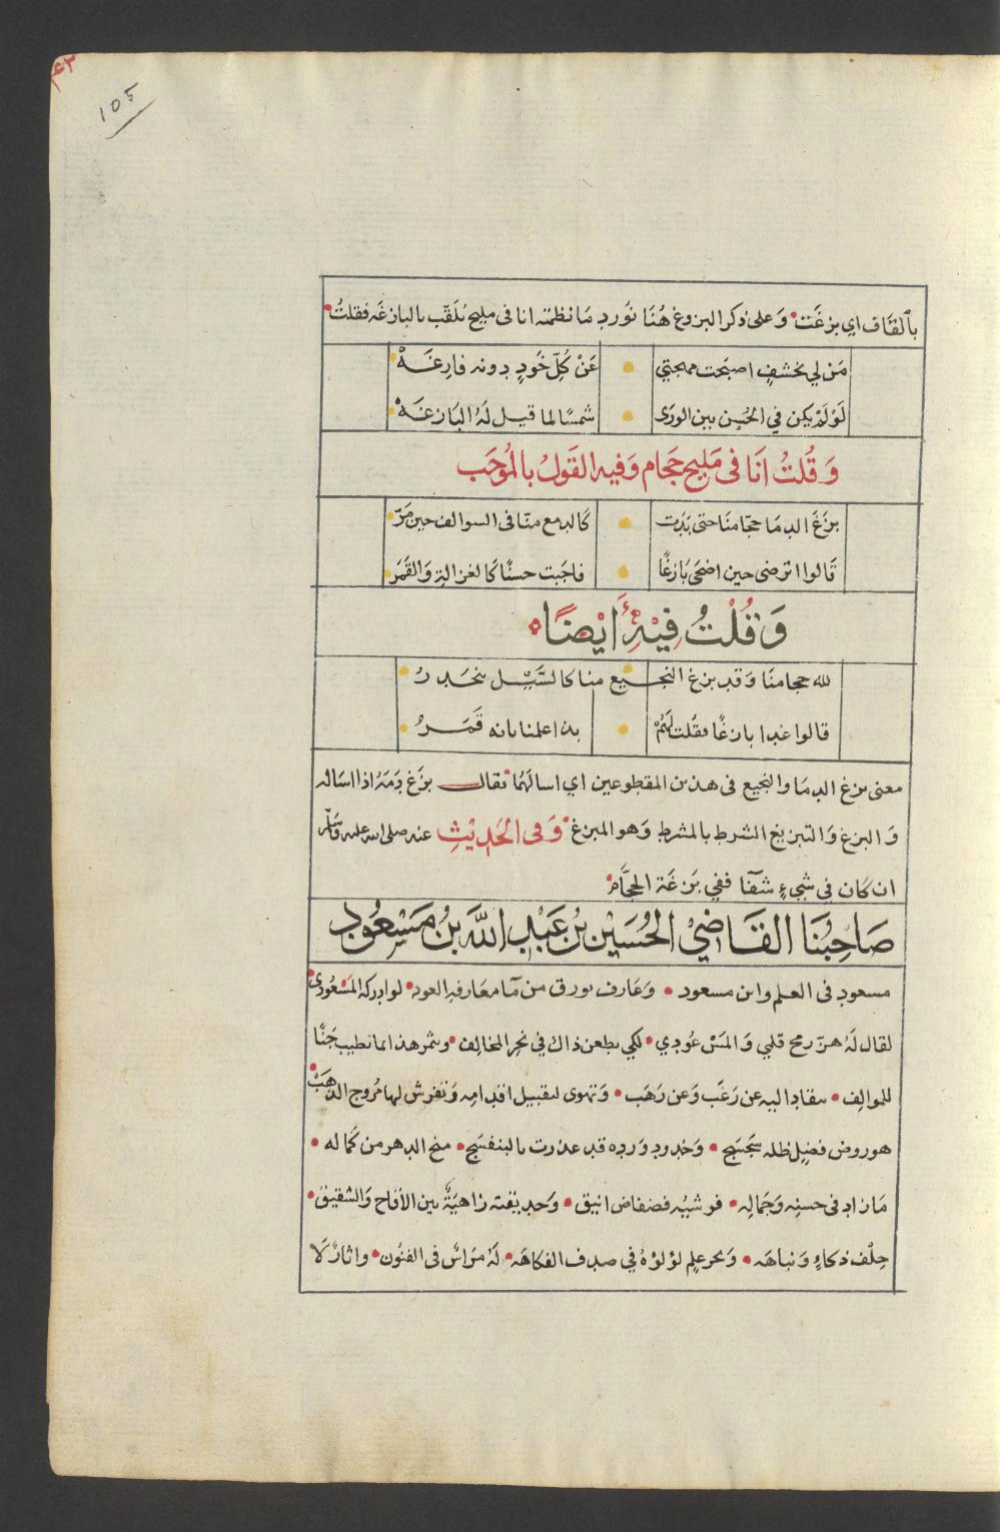 ٤٣
105
بالقاف اي بزغت • وعلى ذكر البزوغ هنا نورد ما نظمته انا في مليح يلقب بالبازغه فقلتُ •
مَن لي بخشفٍ اصبَحت مهجتي • عَنْ كُلّ خَودٍ دونه فارِغَهْ
لَوْ لَمْ يكن في الحُسِن بين الورَى • شمسًا لما قيل لَهُ البَازغَهْ
وَقُلتُ انَا فى مَليح حَجام وَفيه القَولُ بالمُوجَب
بزَغَ الدمَا حجّامنَا حتى بَدَت • كالدمع منّا فى السوالف حين مَرّ
قَالوا اترضى حين اضحَى بَازغًا • فاجَبت حسنًا كالغزالة وَالقَمَر
وَقُلْتُ فِيْهِ أَيْضًا
لله حجامنَا وَقد بزغ النجيع • منا كالسَّيْل ينحَدرُ
قالوا غدا بازغًا فقلت لَهُمْ • بذا علمنا بانه قَمَرُ
معنى بزغ الدمَا والنجيع فى هذين المقطوعين اي اسالَهُما يقال بزَغ دَمَهُ اذا اسَاله
وَالبزغ وَالتبزيغ الشرط بالمشرط وَهو المبزغ • وَفى الحَديثِ عنه صلى الله عليه وَسَلّم
ان كان في شيءٍ شفَا ففي بَزغَة الحجَّام •
صَاحِبُنَا القَاضِيْ الحُسَيْن بْن عَبْدِ اللهِ بْن مَسْعُود
مسعود فى العلم وابن مسعود • وَعَارف يورق من مَا معَارفه العود • لو ادركه المَسْعُودي
لقال لَهُ هزّ رمح قلبي وَالمَسْ عُودي • لكي يطعن ذاك في نحِر المخالِف • ويثمر هذا بما يطيب جَنًا
للموالِف • ينقاد اليه عن رَغَب وَعن رَهَب • وَتهوى لتقبيل اقدامه وَتفرش لها مُروج الذهَبْ •
هو روض فضلٍ ظله سَجْسَج • وَخدود وَرده قد عذرت بالبنفسَج • منح الدهر من كماله •
مَا زاد فى حسنِه وَجَمالِه • فوشيُه فضفاض انيق • وَحديقته زاهيَةٌ بين الاقاح وَالشقيق •
حِلْف ذكاءٍ وَنباهَه • وَبحر عِلمٍ لؤلؤهُ في صدف الفكاهَه • لَهُ مرَاسٌ فى الفنُون • واثارٌ لَا